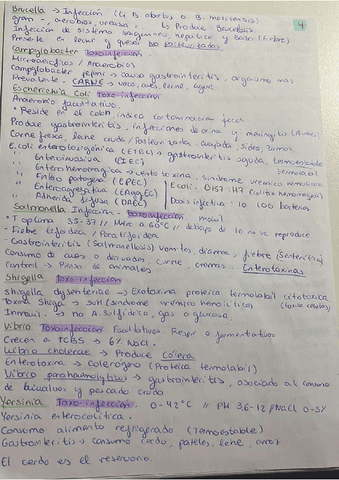 4
Brucella → Infección (Ej B. abortus o B. melitensis)
gram -, aerobios, ureasa. ↳ Produce Brucelosis
Infección de sistema sanguineo, hepático y Bazo (Fiebre)
Presente en leche y quesos no pasteurizados.
Campylobacter Toxoinfección
Microaerofilos / Anaerobios
Campylobacter jejuni → causa gastroenteritis, organismo mas
Prevalente. CARNE → vaca, aves, leche, agua
Escherichia Coli Toxo-infección
Anaerobio facultativo.
• Reside en el colon, indica contaminacion fecal
Produce gastroenteritis, infecciones de orina y meningitis
Carne fresca, leche cruda / Pasteurizada, sidra,
E. coli enterotoxigénica (ETEC) → gastroenteritis aguda, termoestable
termolabil
" Enteroinvasiva (EIEC)
" Enterohemorragica → vero toxina, sindrome uremico hemolitico
" Entero patogena (EPEC)
" Enteroagregativa (EAgEC)
" Adherida difusa (DAEC)
E. coli: O157:H7 (colitis hemorragica)
Dosis infectiva: 10 100 bacterias
Salmonella Infección - toxoinfección movil
T optima 35-37 // Muere a 60°C // debajo de 10 no se reproduce
- Fiebre tifoidea / Paratifoidea
- Gastroenteritis (Salmonellosis) vomitos, diarrea, fiebre (Senteritica)
Consumo de aves o derivados Carne, cremas. Enterotoxinas
Control → Pienso de animales
Shigella Toxo-infección
Shigella dysenteriae → Exotoxina proteica termolabil citotoxica
Toxina Shiga → SUH (síndrome urémico hemolítico)
Inmovil. → no A. sulfidrico, gas o glucosa.
Vibrio Toxoinfección Facultativos. Respir o fermentativos
Crecen a TCBS → 6% NaCl.
Vibrio cholerae → Produce Cólera
Enterotoxina → colerágeno (Proteica termolabil)
Vibrio parahaemolyticus → gastroenteritis, asociado al consumo
de bivalvos y pescado crudo
Yersinia Toxo-infección. 0-42°C // PH 3,6-12 NaCl 0-5%
Yersinia enterocolitica.
Consumo alimento refrigerado (Termoestable)
Gastroenteritis → consumo cerdo, pasteles, leche, arroz
El cerdo es el reservorio.